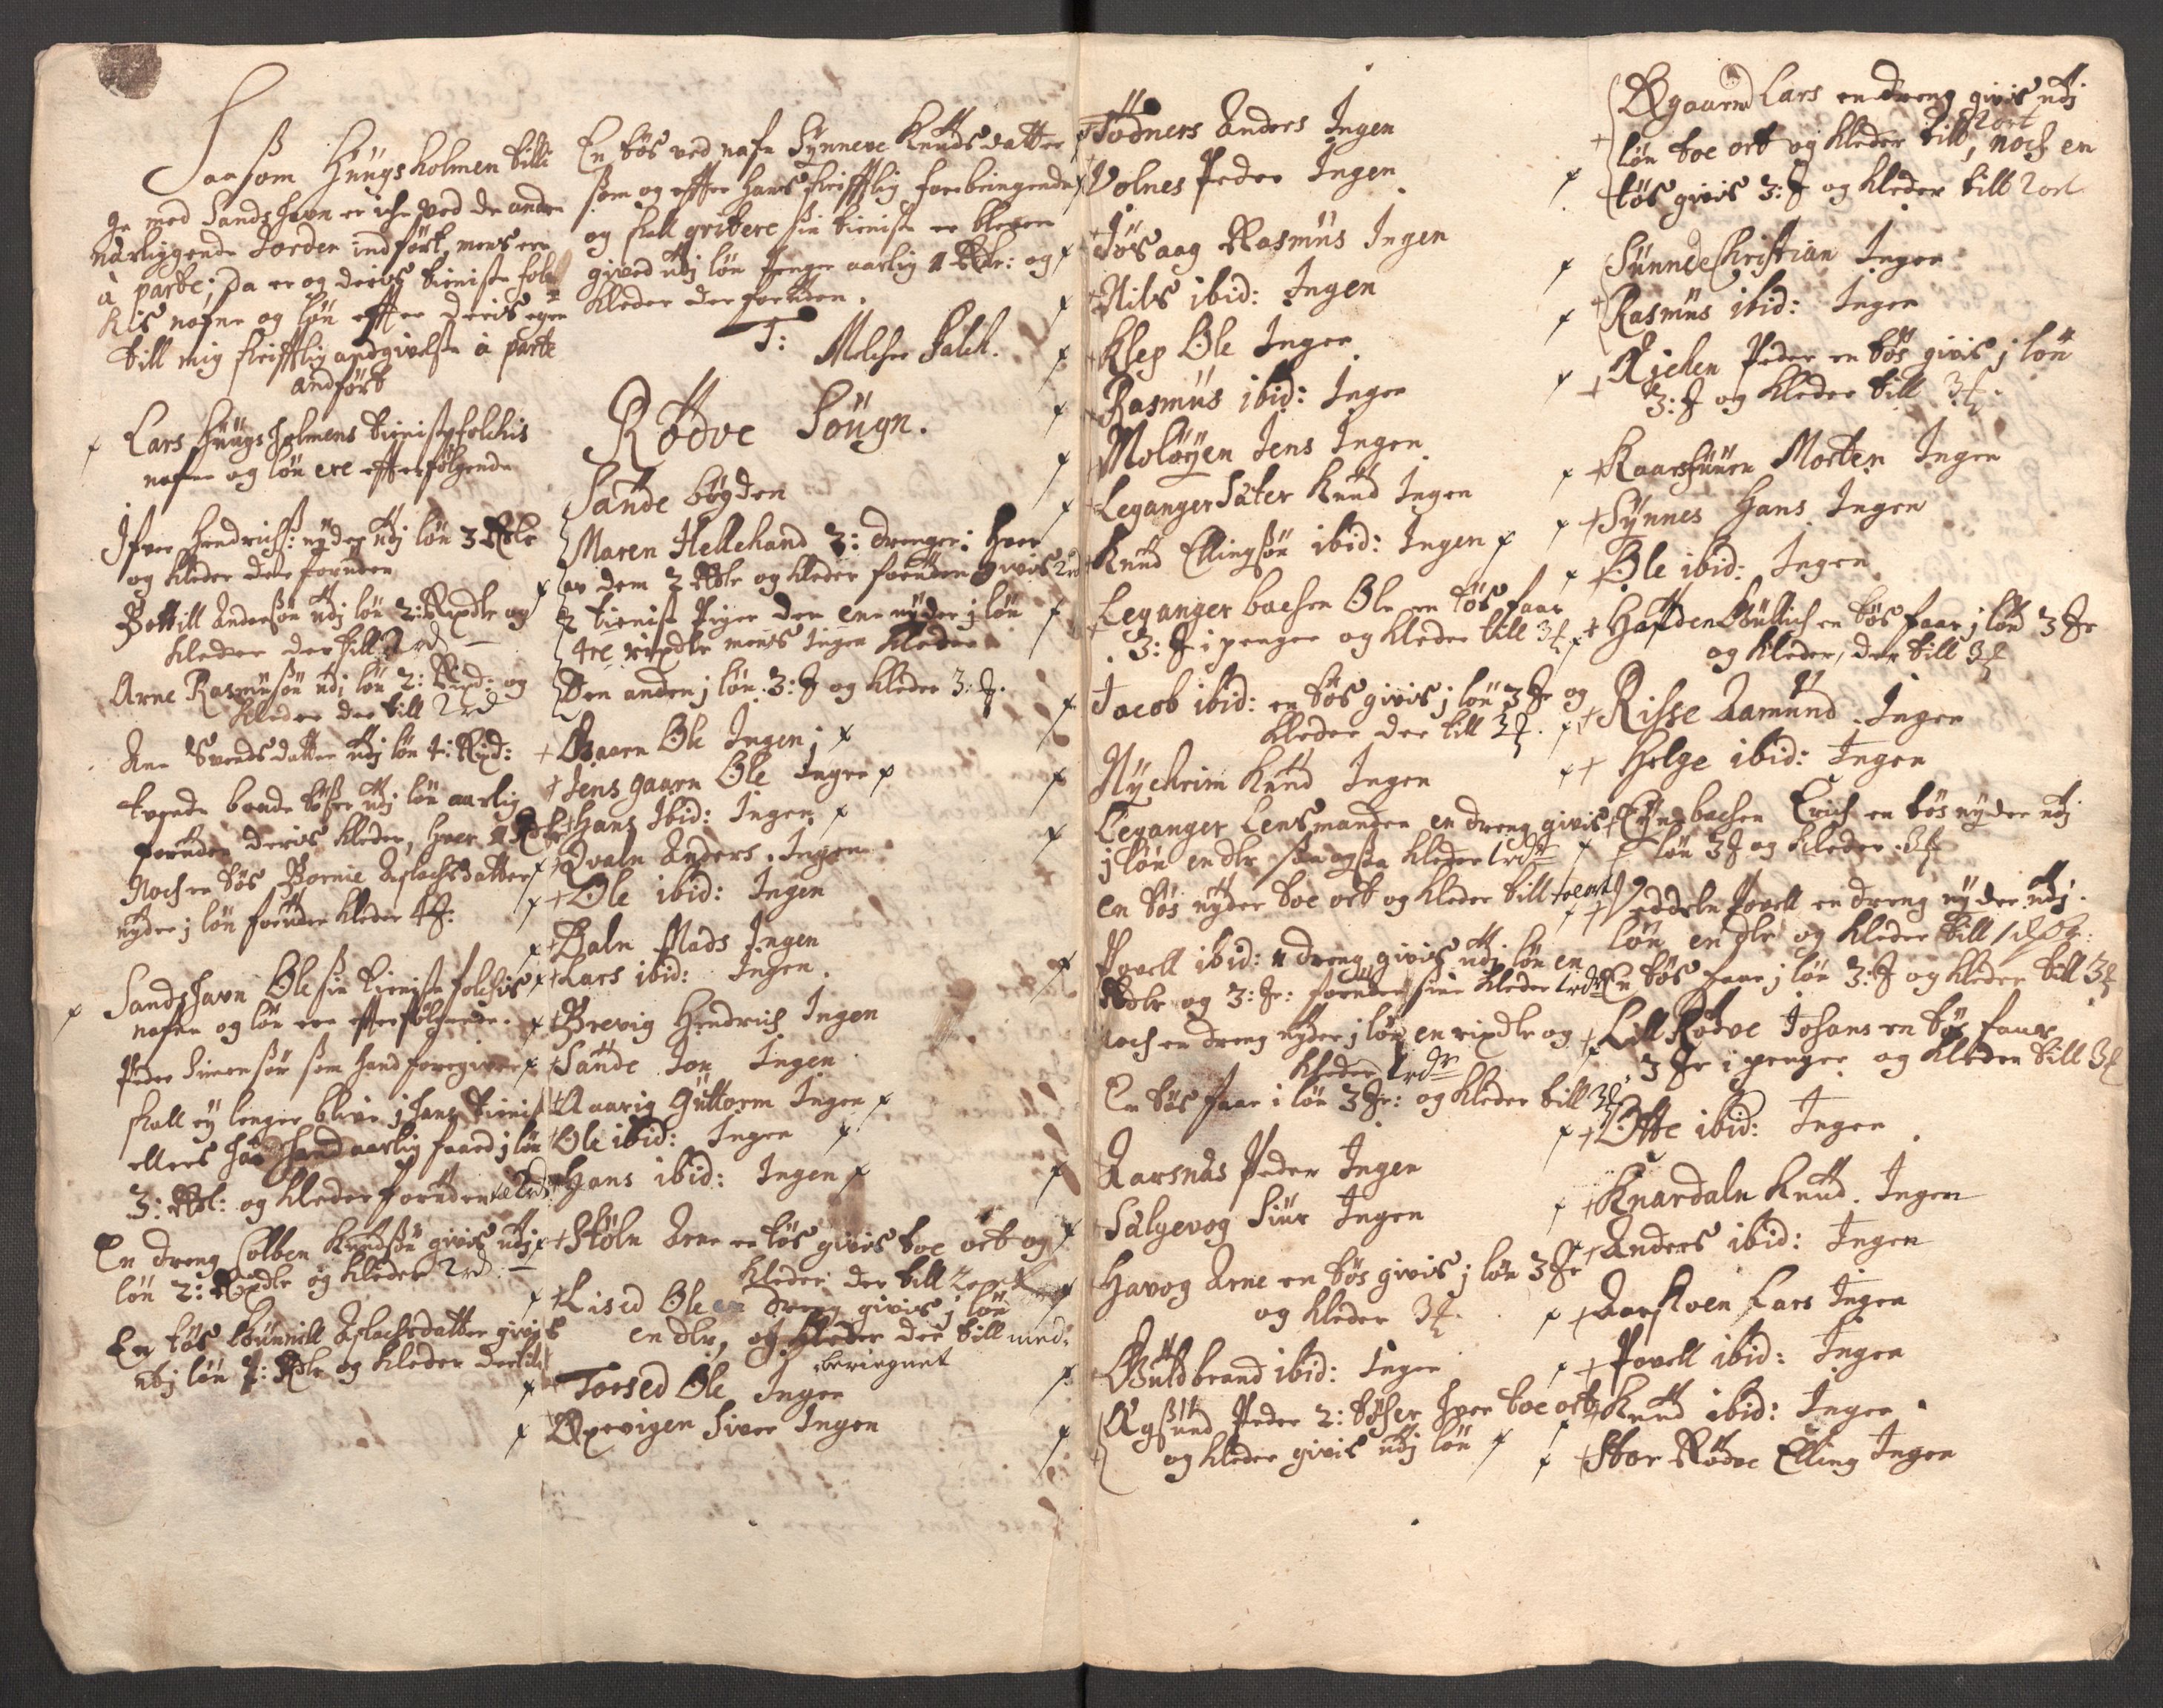 Saasom Hüugsholmen tilli
ge med Sandshavn er iche ved de andre
nærliggende Jorder indført, mens ere
à parte; da er og deris tieniste fol-
kis nafne og løn efter deris egen
till mig skrifftlig andgivelse à parte
andført
Lars Hüugsholmens tieniste folchis
nafne og løn ere effterfølgende
Ifver Hendrichs: nyder udj løn 3 Rdlr
og kleder dere foruden
Bottill Anderssøn udj løn 2: Rixdlr og
kleder der till 2 rd
Arne Rasmusøn udj løn 2: Rixd: og
kleder der till 2 rd
Ane Svendsdatter udj løn 4: Rixd:
tvende baade tøser udj løn aarlig
foruden deris kleder, hver 1 Rdlr
Noch en tøs Bornie Aslachsdatter
nyder j løn foruden kleder
Sandshavn Ole sin tieniste folchis
nafne og løn ere effterfølgende.
Peder Simensøn som hand foregiver
skall ey lenger blive j hans tieniste
ellers haver hand aarlig faaed j løn
3: Rdl: og kleder foruden
En dreng Colben Knudsøn givis udj
løn 2: Rixdlr og kleder 2 rd
En tøs Gunnill Aslachsdatter givis
udj løn Rdlr og kleder dertill
En tøs ved nafn Synneve Knudsdatter
som og effter hans skrifftlig forebringende
og skall qvitere sin tieniste er bleven
gived udj løn penge aarlig 1 Rdlr: og
kleder der foruden.
T:
Melcher Falch.
Rødve Sougn.
Sande bøgden
Maren Hellehand 2: drenger: hver
av dem 2 Rdlr og kleder foruden givis
2 tieniste Piger den ene nyder j løn
rixdlr mens Ingen kleder
Den anden j løn 3: og kleder 3:
Gaarn Ole Ingen
Jens gaarn Ole Ingen
Hans Ibid: Ingen
Qvaln Anders Ingen
Ole ibid: Ingen
Daln Mads Ingen
Lars ibid: Ingen
Brevig Hendrich Ingen
Sande Jon Ingen
Aarvig Guttorm Ingen
Ole ibid: Ingen
Hans ibid: Ingen
Støln Arne en tøs givis toe ort og
kleder der till 2 ort
Lised Ole en dreng givis j løn
en dlr, og kleder der till med
beriegnet
Torsed Ole Ingen
Oxevigen Siver Ingen
Tødners Anders Ingen
Volnes Peder Ingen
Tøsaag Rasmus Ingen
Nils ibid: Ingen
Klep Ole Ingen
Rasmus ibid: Ingen
Moløyen Jens Ingen
Leganger Sæter Knud Ingen
Knud Ellingsøn ibid: Ingen
Leganger bachen Ole en tøs faar
3: i penger og kleder till
Jacob ibid: en tøs givis j løn 3 og
kleder der till
Nyeheim Knud Ingen
Leganger Lensmanden en dreng givis
j løn en dlr saa ogsaa kleder 1 rdr
en tøs nyder toe ort og kleder till toe ort
Povell ibid: en dreng givis udj løn en
Rdlr og 3: foruden sine kleder 1 rdr
noch en dreng nyder j løn en rixdlr og
kleder 1 rdr
En tøs faar i løn 3 og kleder till
Aarsnæs Peder Ingen
Salgevog Siur Ingen
Havog Arne en tøs givis j løn 3
og kleder
Guldbrand ibid: Ingen
Øgsund Peder 2: tøser hver toe ort
og kleder givis udj løn
Øgaarn Lars en dreng givis udj
løn toe ort og kleder till 2 ort, noch en
tøs givis 3: og kleder till 2 ort
Sunnde Christian Ingen
Rasmus ibid: Ingen
Kiehen Peder en tøs givis j løn
3: og kleder till
Kaarshuuen Morten Ingen
Synnes Hans Ingen
Ole ibid: Ingen
Hafden Gullich en tøs faar j løn 3
og kleder, der till
Risse Aamund Ingen
Helge ibid: Ingen
Eyn bachen Erich en tøs nyder udj
løn 3 og kleder
Veddeln Povell en dreng nyder udj
løn en dlr og kleder till
En tøs faar j løn 3: og kleder till
Lill Rødve Johans en tøs faar
3 i penger og kleder till
Otte ibid: Ingen
Knardaln Knud Ingen
Anders ibid: Ingen
Aarskoen Lars Ingen
Povell ibid: Ingen
Knud ibid: Ingen
Stor Rødve Elling Ingen